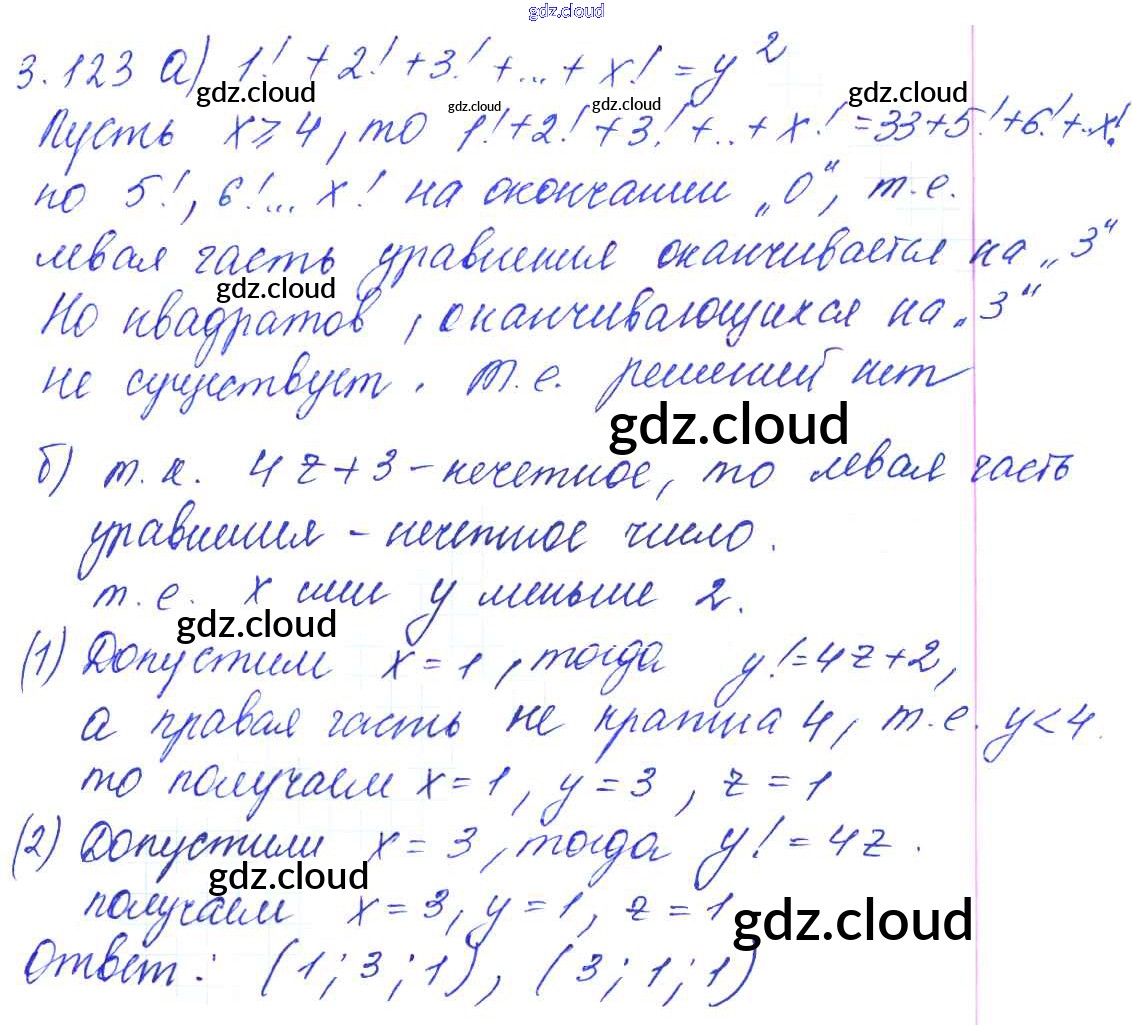 gdz.cloud
3.123 а) 1! + 2! + 3! + ... + x! = y²
gdz.cloud gdz.cloud gdz.cloud gdz.cloud
Пусть x ⩾ 4, то 1! + 2! + 3! + .. + x! = 33 + 5! + 6! + .. x!
но 5!, 6! ... x! на окончании „0“, т.е.
левая часть уравнения оканчивается на „3“
gdz.cloud
Но квадратов, оканчивающихся на „3“
не существует. Т.е. решений нет
gdz.cloud
б) т.к. 4z+3 – нечетное, то левая часть
уравнения – нечетное число.
т.е. x или y меньше 2.
gdz.cloud
(1) Допустим x = 1, тогда y! = 4z+2,
а правая часть не кратна 4, т.е. y < 4.
то получаем x = 1, y = 3, z = 1
(2) Допустим x = 3, тогда y! = 4z.
gdz.cloud
получаем x = 3, y = 1, z = 1
gdz.cloud
Ответ: (1; 3; 1), (3; 1; 1)